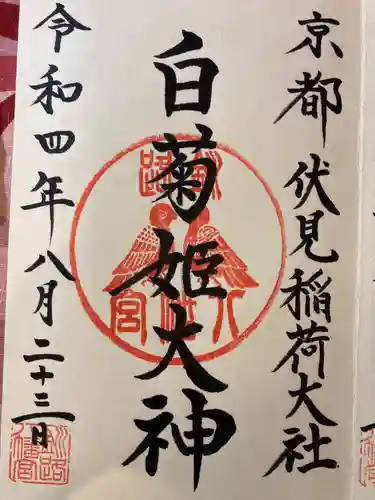 京都伏見稲荷大社
白菊姫大神
令和四年八月二十三日